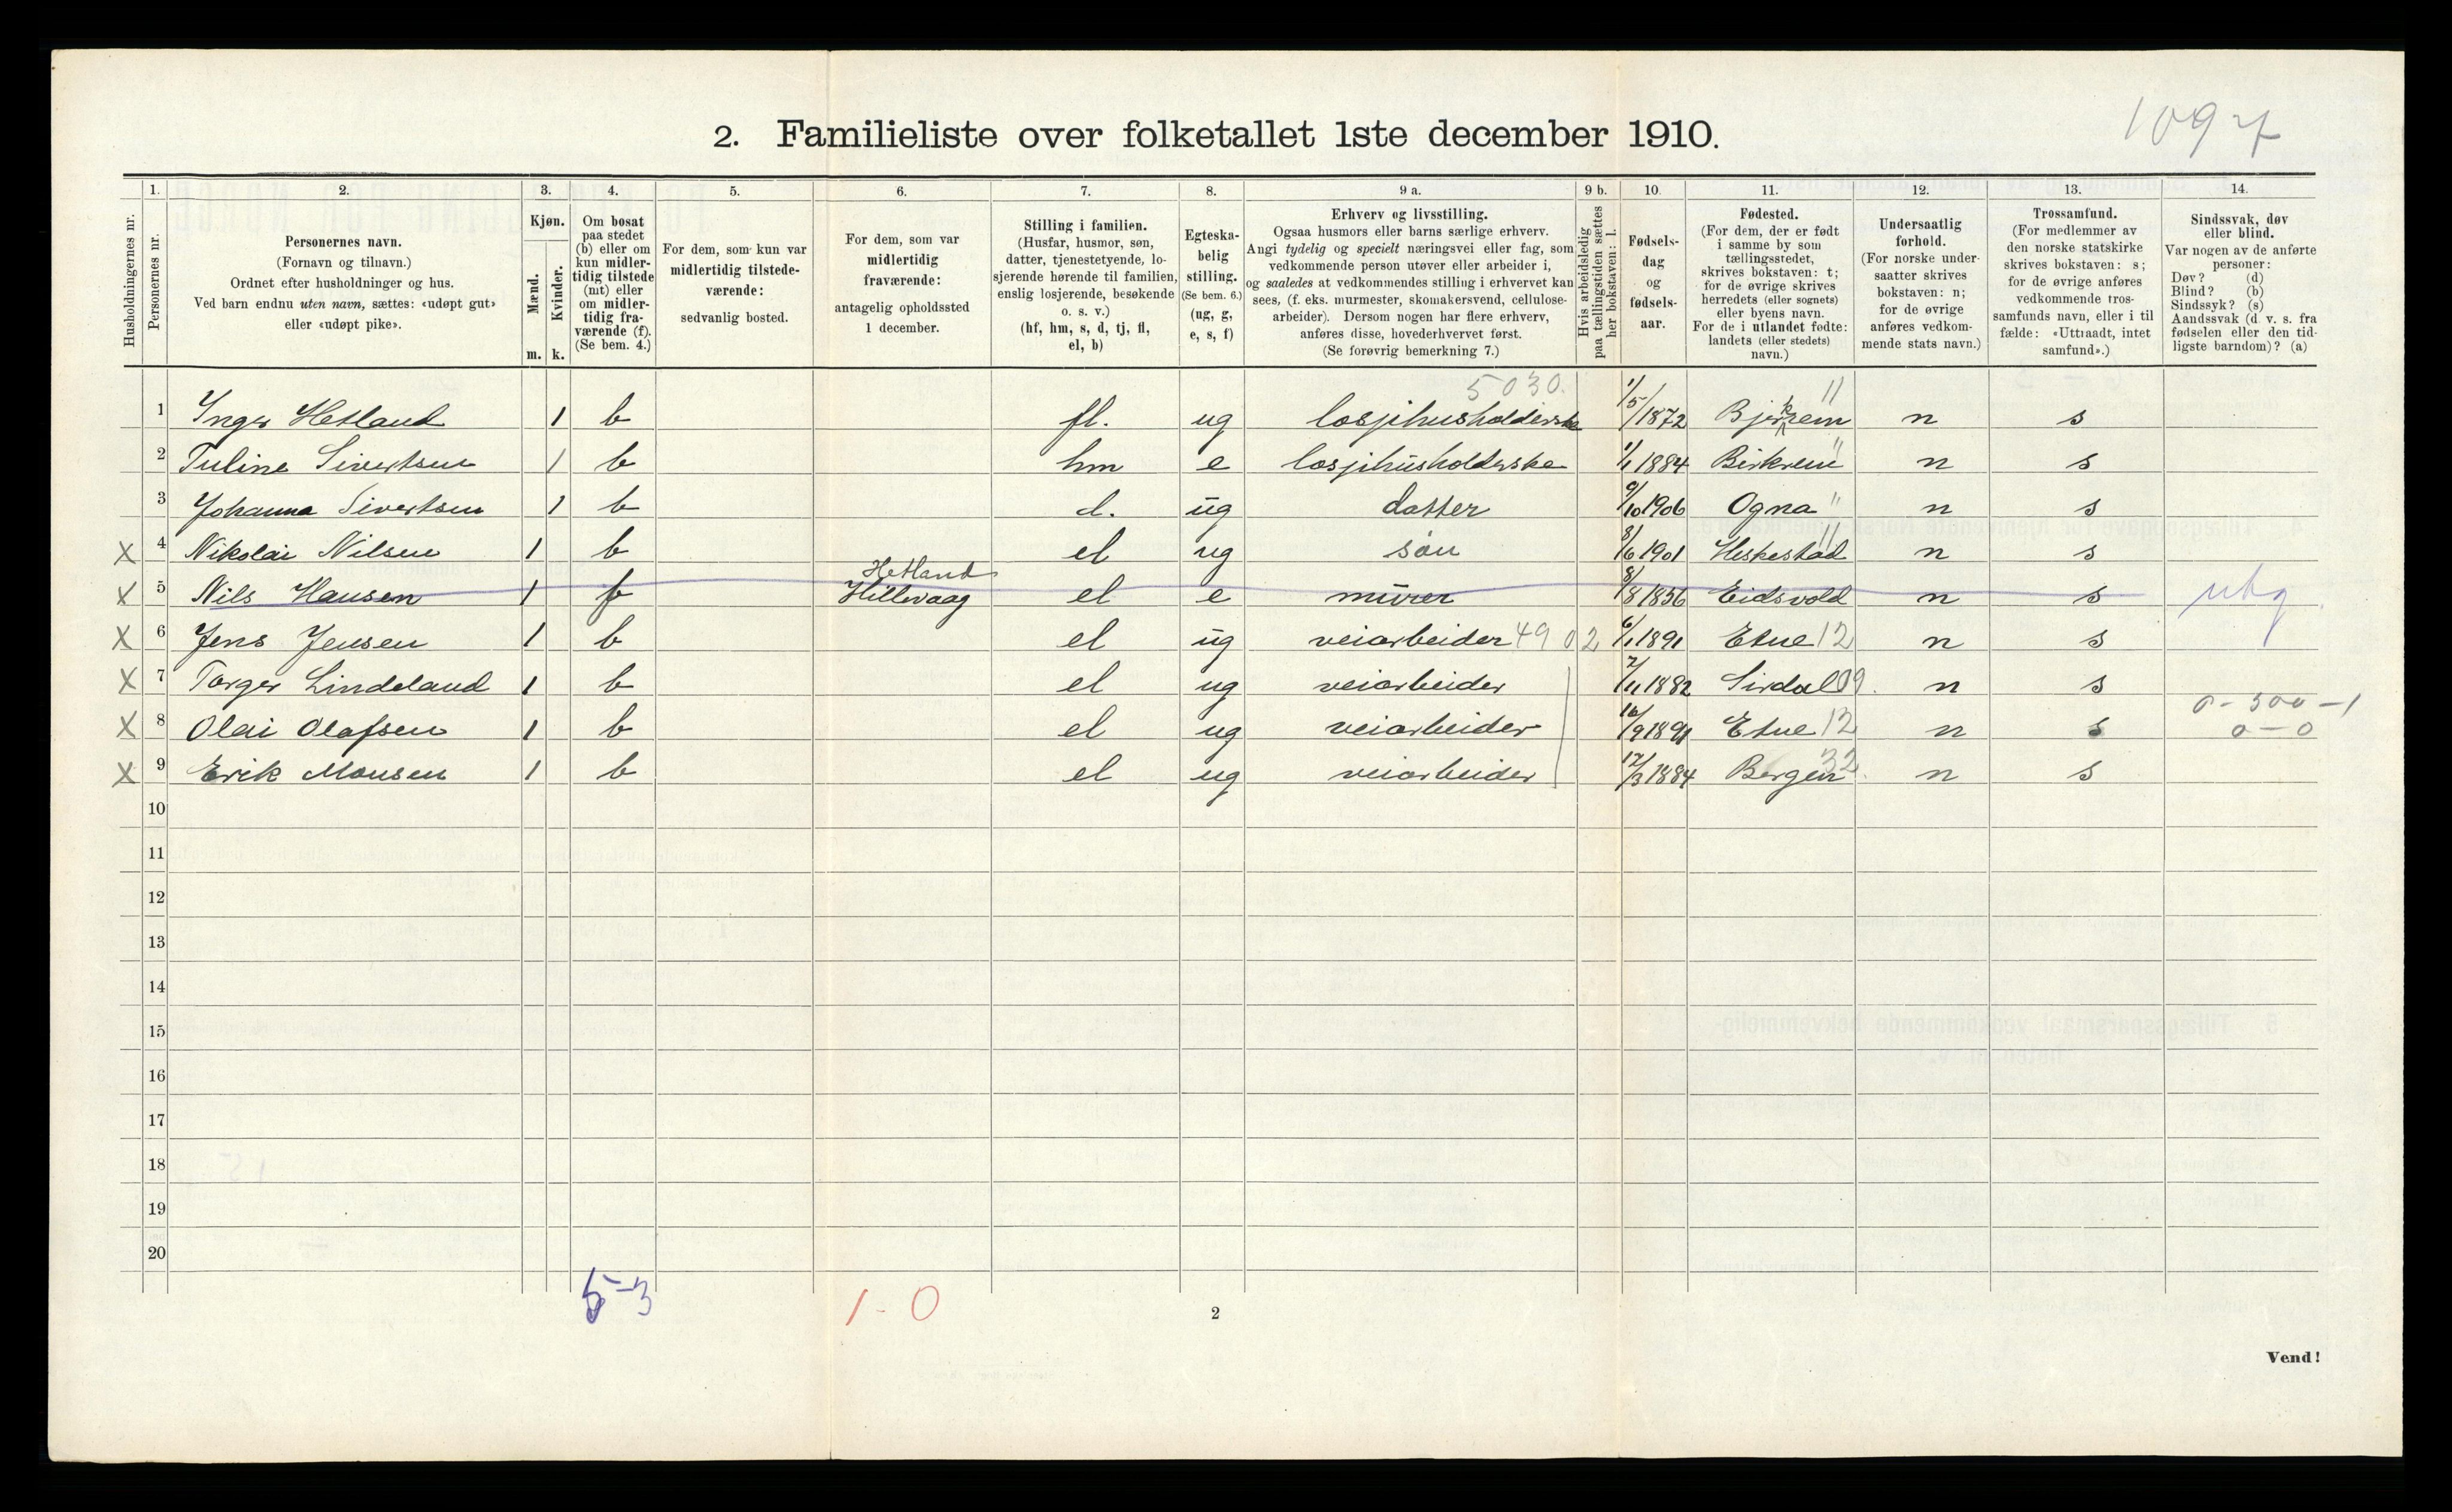 1097
2. Familieliste over folketallet 1ste december 1910.
Husholdningernes nr.
1. Personernes nr.
2. Personernes navn.
(Fornavn og tilnavn.)
Ordnet efter husholdninger og hus.
Ved barn endnu uten navn, sættes: «udøpt gut»
eller «udøpt pike».
3. Kjøn.
Mænd. m.
Kvinder. k.
4. Om bosat
paa stedet
(b) eller om
kun midler-
tidig tilstede
(mt) eller
om midler-
tidig fra-
værende (f).
(Se bem. 4.)
5. For dem, som kun var
midlertidig tilstede-
værende:
sedvanlig bosted.
6. For dem, som var
midlertidig
fraværende:
antagelig opholdssted
1 december.
7. Stilling i familien.
(Husfar, husmor, søn,
datter, tjenestetyende, lo-
sjerende hørende til familien,
enslig losjerende, besøkende
o. s. v.)
(hf, hm, s, d, tj, fl,
el, b)
8. Egteska-
belig
stilling.
(Se bem. 6.)
(ug, g,
e, s, f)
9 a. Erhverv og livsstilling.
Ogsaa husmors eller barns særlige erhverv.
Angi tydelig og specielt næringsvei eller fag, som
vedkommende person utøver eller arbeider i,
og saaledes at vedkommendes stilling i erhvervet kan
sees, (f. eks. murmester, skomakersvend, cellulose-
arbeider). Dersom nogen har flere erhverv,
anføres disse, hovederhvervet først.
(Se forøvrig bemerkning 7.)
9 b. Hvis arbeidsledig
paa tællingstiden sættes
her bokstaven: l.
10. Fødsels-
dag
og
fødsels-
aar.
11. Fødested.
(For dem, der er født
i samme by som
tællingsstedet,
skrives bokstaven: t;
for de øvrige skrives
herredets (eller sognets)
eller byens navn.
For de i utlandet fødte:
landets (eller stedets)
navn.)
12. Undersaatlig
forhold.
(For norske under-
saatter skrives
bokstaven: n;
for de øvrige
anføres vedkom-
mende stats navn.)
13. Trossamfund.
(For medlemmer av
den norske statskirke
skrives bokstaven: s;
for de øvrige anføres
vedkommende tros-
samfunds navn, eller i til
fælde: «Uttraadt, intet
samfund».)
14. Sindssvak, døv
eller blind.
Var nogen av de anførte
personer:
Døv? (d)
Blind? (b)
Sindssyk? (s)
Aandssvak (d. v. s. fra
fødselen eller den tid-
ligste barndom)? (a)
5030.
1 Inger Hetland 1 b fl. ug losjihusholderske 1/5/1872 Bjerkrem " n s
2 Tuline Sivertsen 1 b hm e losjihusholderske 1/1 1884 Birkrem " n s
3 Johanna Sivertsen 1 b d. ug datter 9/10 1906 Ogna " n s
X 4 Nikolai Nilsen 1 b el ug søn 8/6 1901 Heskestad " n s
Hetland
X 5 Nils Hansen 1 f Hillevaag el e murer 8/8 1856 Eidsvold n s
X 6 Jens Jensen 1 b el ug veiarbeider 4902 6/1 1891 Etne 12 n s
X 7 Torger Lindeland 1 b el ug veiarbeider 7/11 1882 Sirdal 09. n s
0-300-1
X 8 Olai Olafsen 1 b el ug veiarbeider 16/9 1891 Etne 12 n s 0-0
X 9 Erik Monsen 1 b el ug veiarbeider 12/3 1884 Bergen 32. n s
10
11
12
13
14
15
16
17
18
19
20
5-3
1-0
2
Vend!